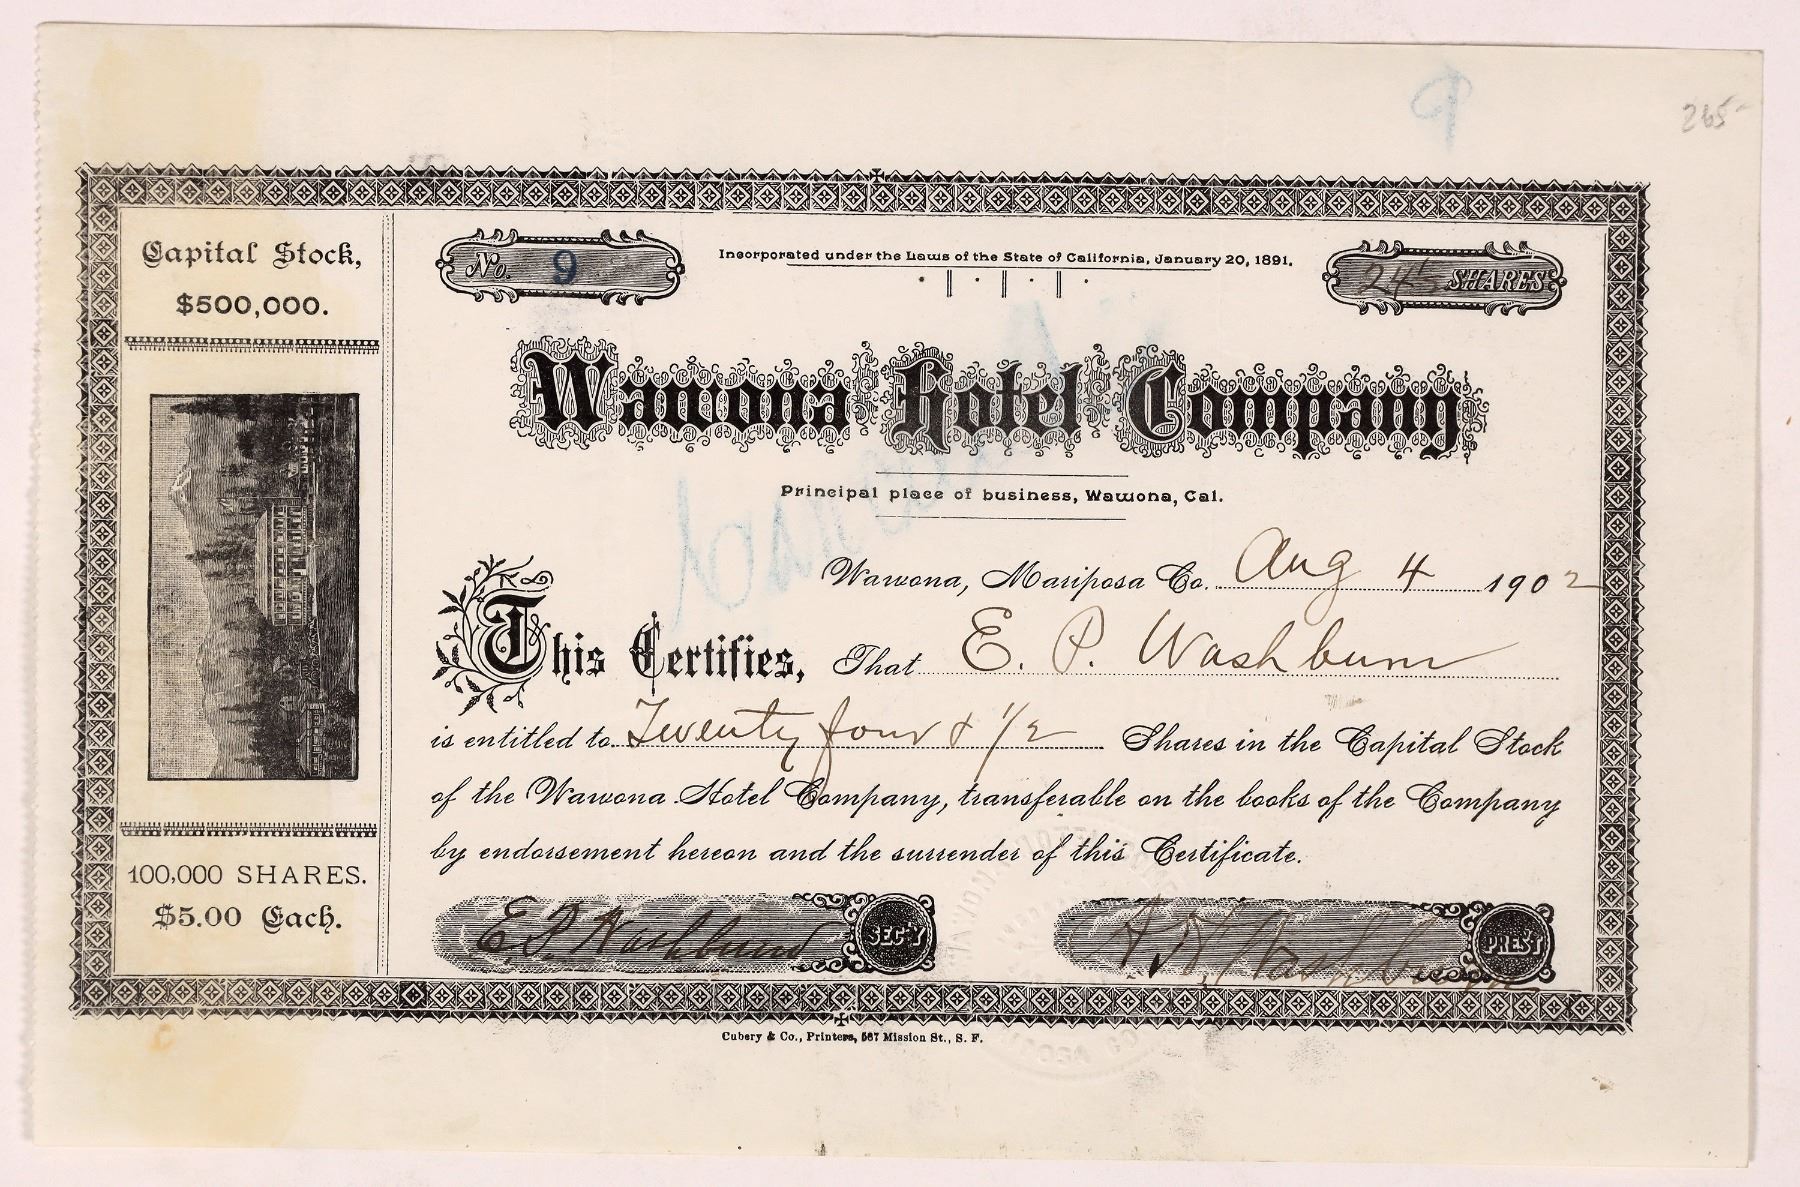 265-
Capital Stock,
$500,000.
100,000 SHARES.
$5.00 Each.
No. 9
Incorporated under the Laws of the State of California, January 20, 1891.
24 5 SHARES
Wawona Hotel Company
Principal place of business, Wawona, Cal.
Wawona, Mariposa Co. Aug 4 1902
This Certifies, That E. P. Washburn
is entitled to Twenty four & 1/2 Shares in the Capital Stock
of the Wawona Hotel Company, transferable on the books of the Company
by endorsement hereon and the surrender of this Certificate.
E. P. Washburn SEC'Y
A. H. Washburn PRES'T
Cubery & Co., Printers, 587 Mission St., S. F.